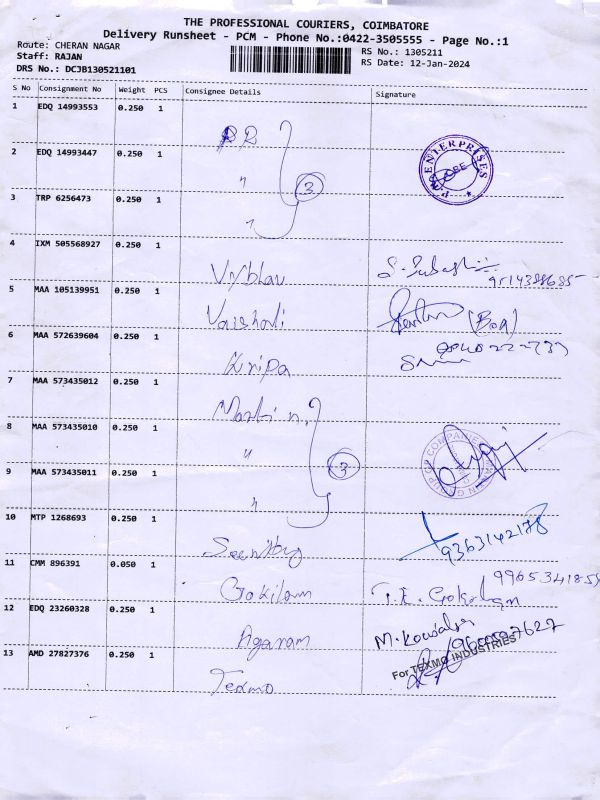 THE PROFESSIONAL COURIERS, COIMBATORE
Delivery Runsheet - PCM - Phone No.:0422-3505555 - Page No.:1
Route: CHERAN NAGAR
RS No.: 1305211
Staff: RAJAN
RS Date: 12-Jan-2024
DRS No.: DCJB130521101
S No Consignment No Weight PCS Consignee Details Signature
1 EDQ 14993553 0.250 1
2 EDQ 14993447 0.250 1
ENTERPRISES
3
3 TRP 6256473 0.250 1
4 IXM 505568927 0.250 1
Vybhav
5 MAA 105139951 0.250 1
Vaishali
6 MAA 572639604 0.250 1
Kripa
7 MAA 573435012 0.250 1
8 MAA 573435010 0.250 1
3
9 MAA 573435011 0.250 1
10 MTP 1268693 0.250 1
9363142178
11 CMM 896391 0.050 1
Gokilam
12 EDQ 23260328 0.250 1
Agaram
M. Kowsalya
13 AMD 27827376 0.250 1
For TEXMO INDUSTRIES
Texmo